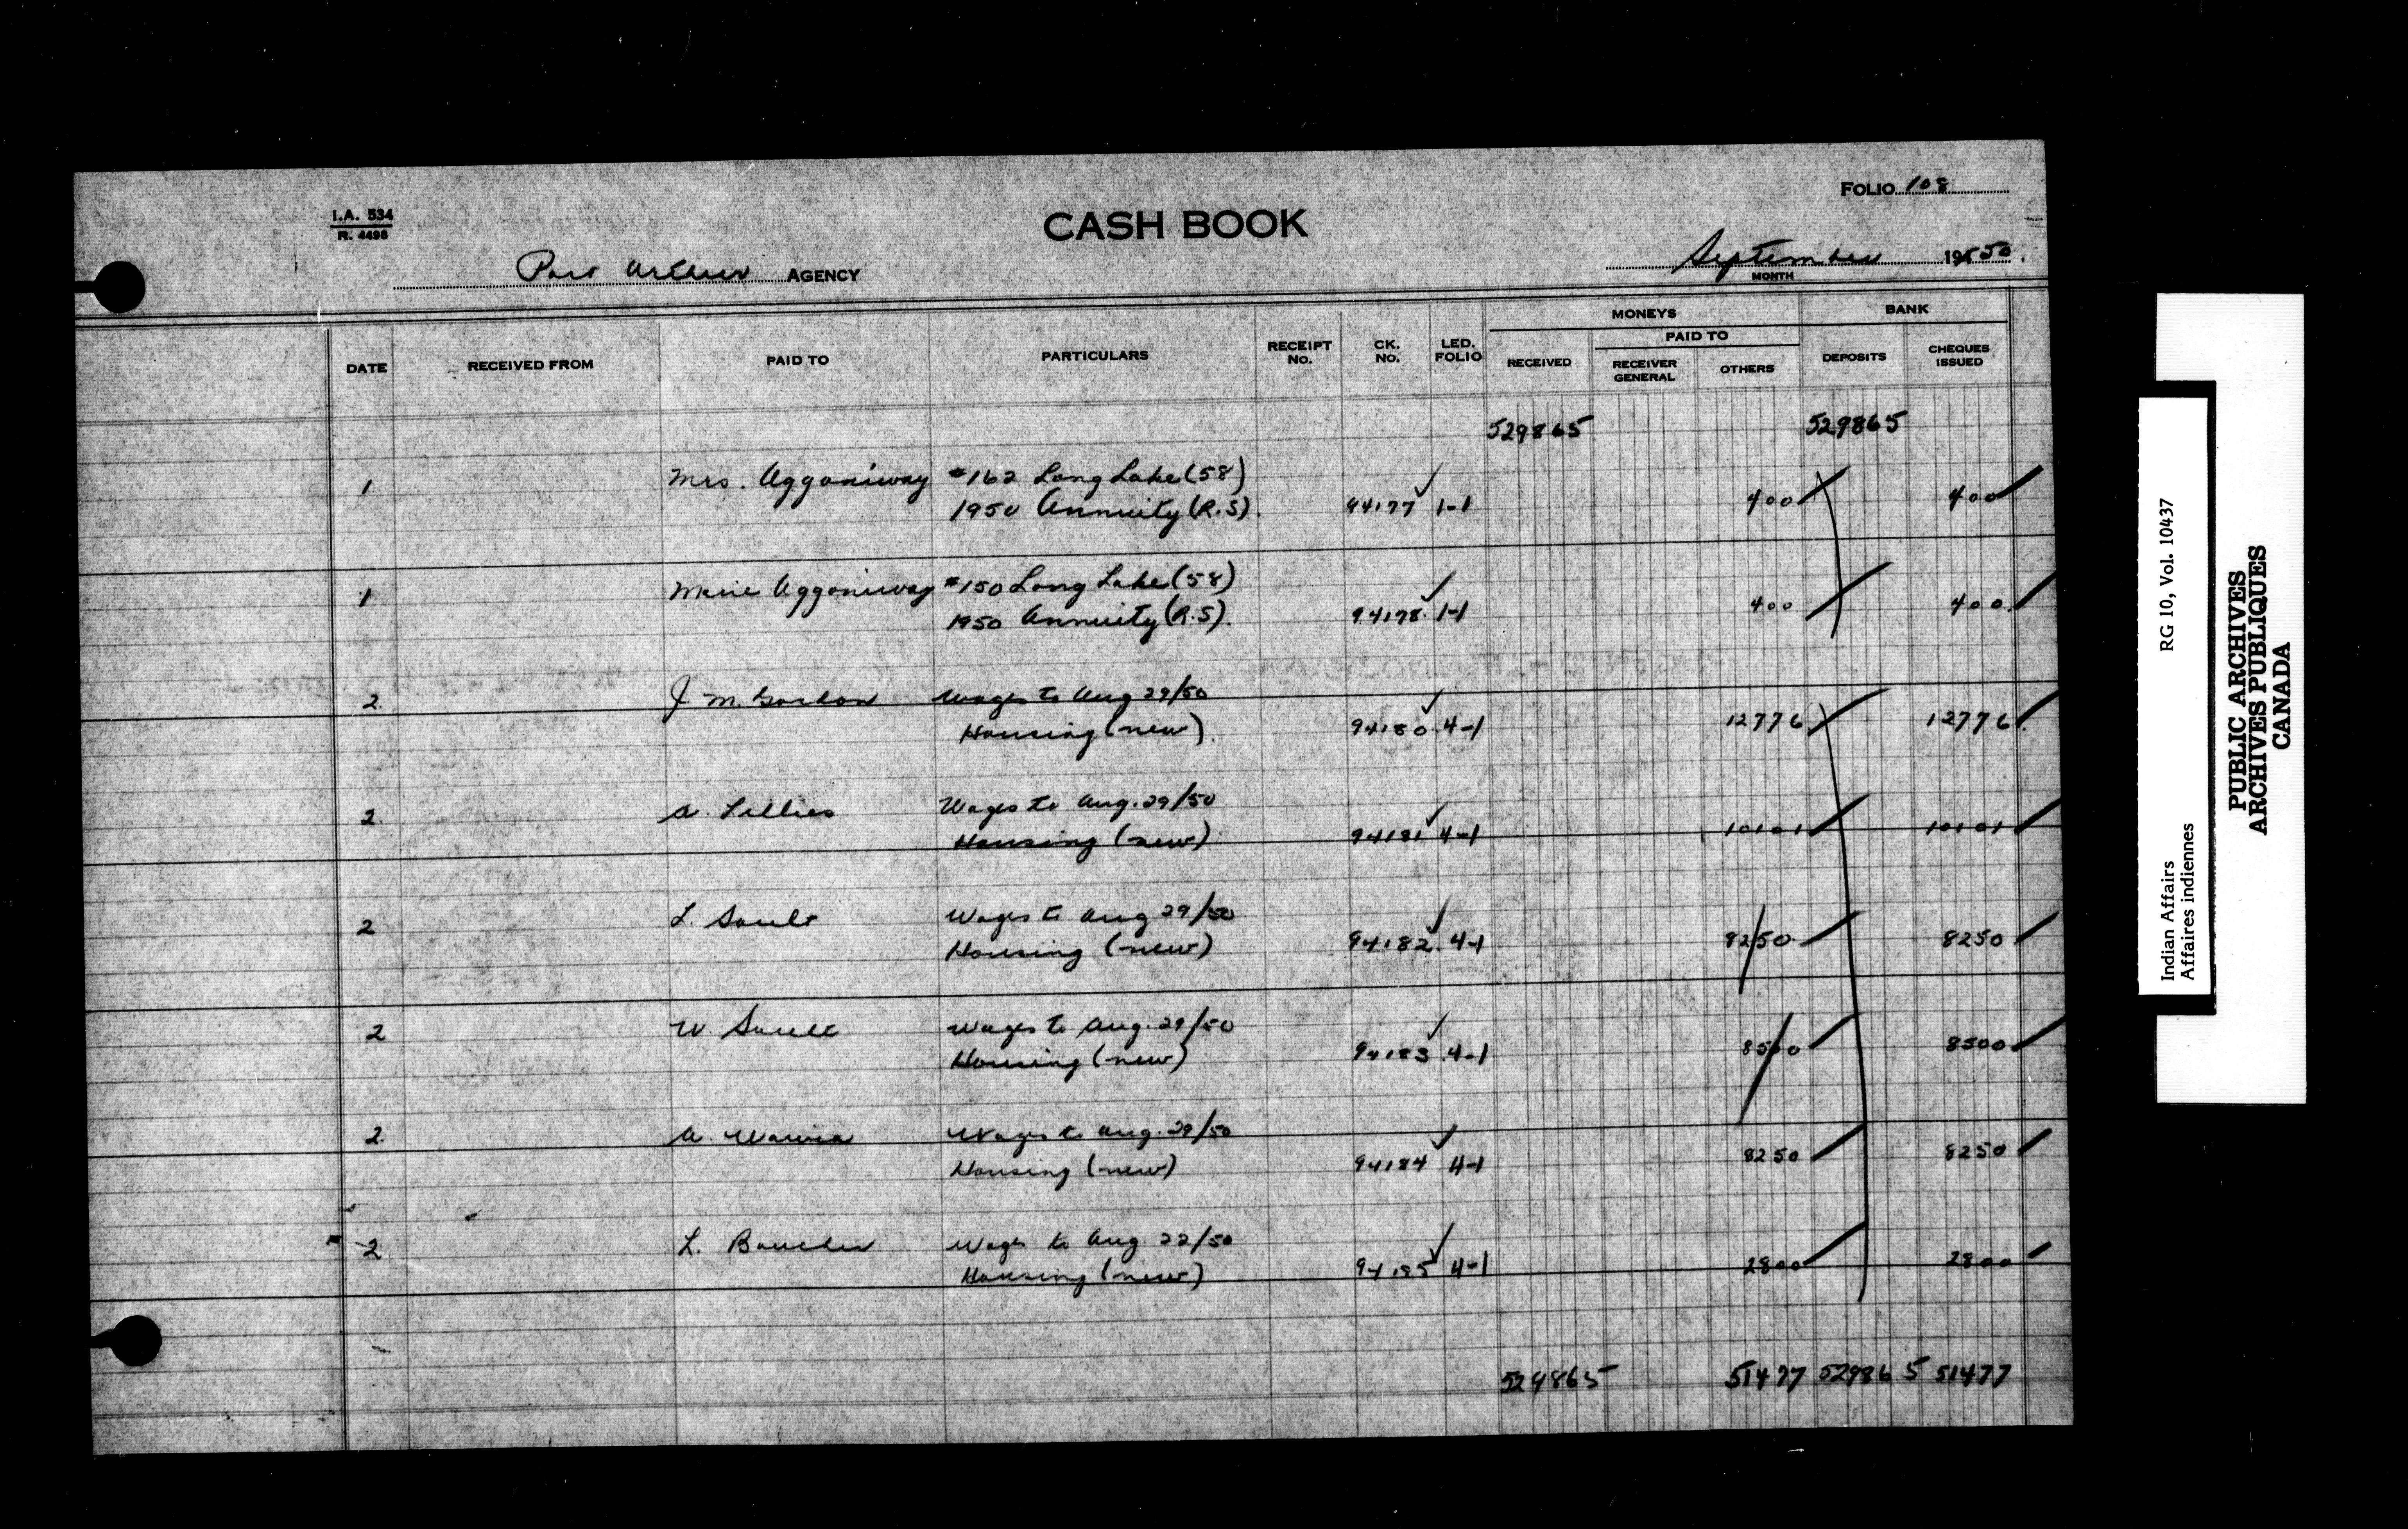 FOLIO 108
I.A. 534
R. 4498
CASH BOOK
Port Arthur AGENCY
September 1950.
MONTH
MONEYS BANK
PAID TO
DATE RECEIVED FROM PAID TO PARTICULARS RECEIPT NO. CK. NO. LED. FOLIO RECEIVED RECEIVER GENERAL OTHERS DEPOSITS CHEQUES ISSUED
529865 529865
1 Mrs. Aggoniway #162 Long Lake (58)
1950 Annuity (R.S). 94177 1-1 400 400
1 Marie Aggoniway #150 Long Lake (58)
1950 Annuity (R.S). 94178. 1-1 400 400.
2. J. M. Wages to Aug 29/50
Housing (new). 94180. 4-1 12776 12776
2. A. Wages to Aug. 29/50
Housing (new). 94181 4-1 10101 10101
2 L. Sault Wages to Aug 29/50
Housing (new) 94182. 4-1 8250. 8250
2 W Sault Wages to Aug. 29/50
Housing (new) 94183 4-1 8500 8500
2. A. Wages to Aug. 29/50
Housing (new) 94184 4-1 8250 8250
2 L. Boucher Wages to Aug 22/50
Housing (new) 94185 4-1 2800 2800
529865 51477 529865 51477
Indian Affairs RG 10, Vol. 10437
Affaires indiennes
PUBLIC ARCHIVES
ARCHIVES PUBLIQUES
CANADA